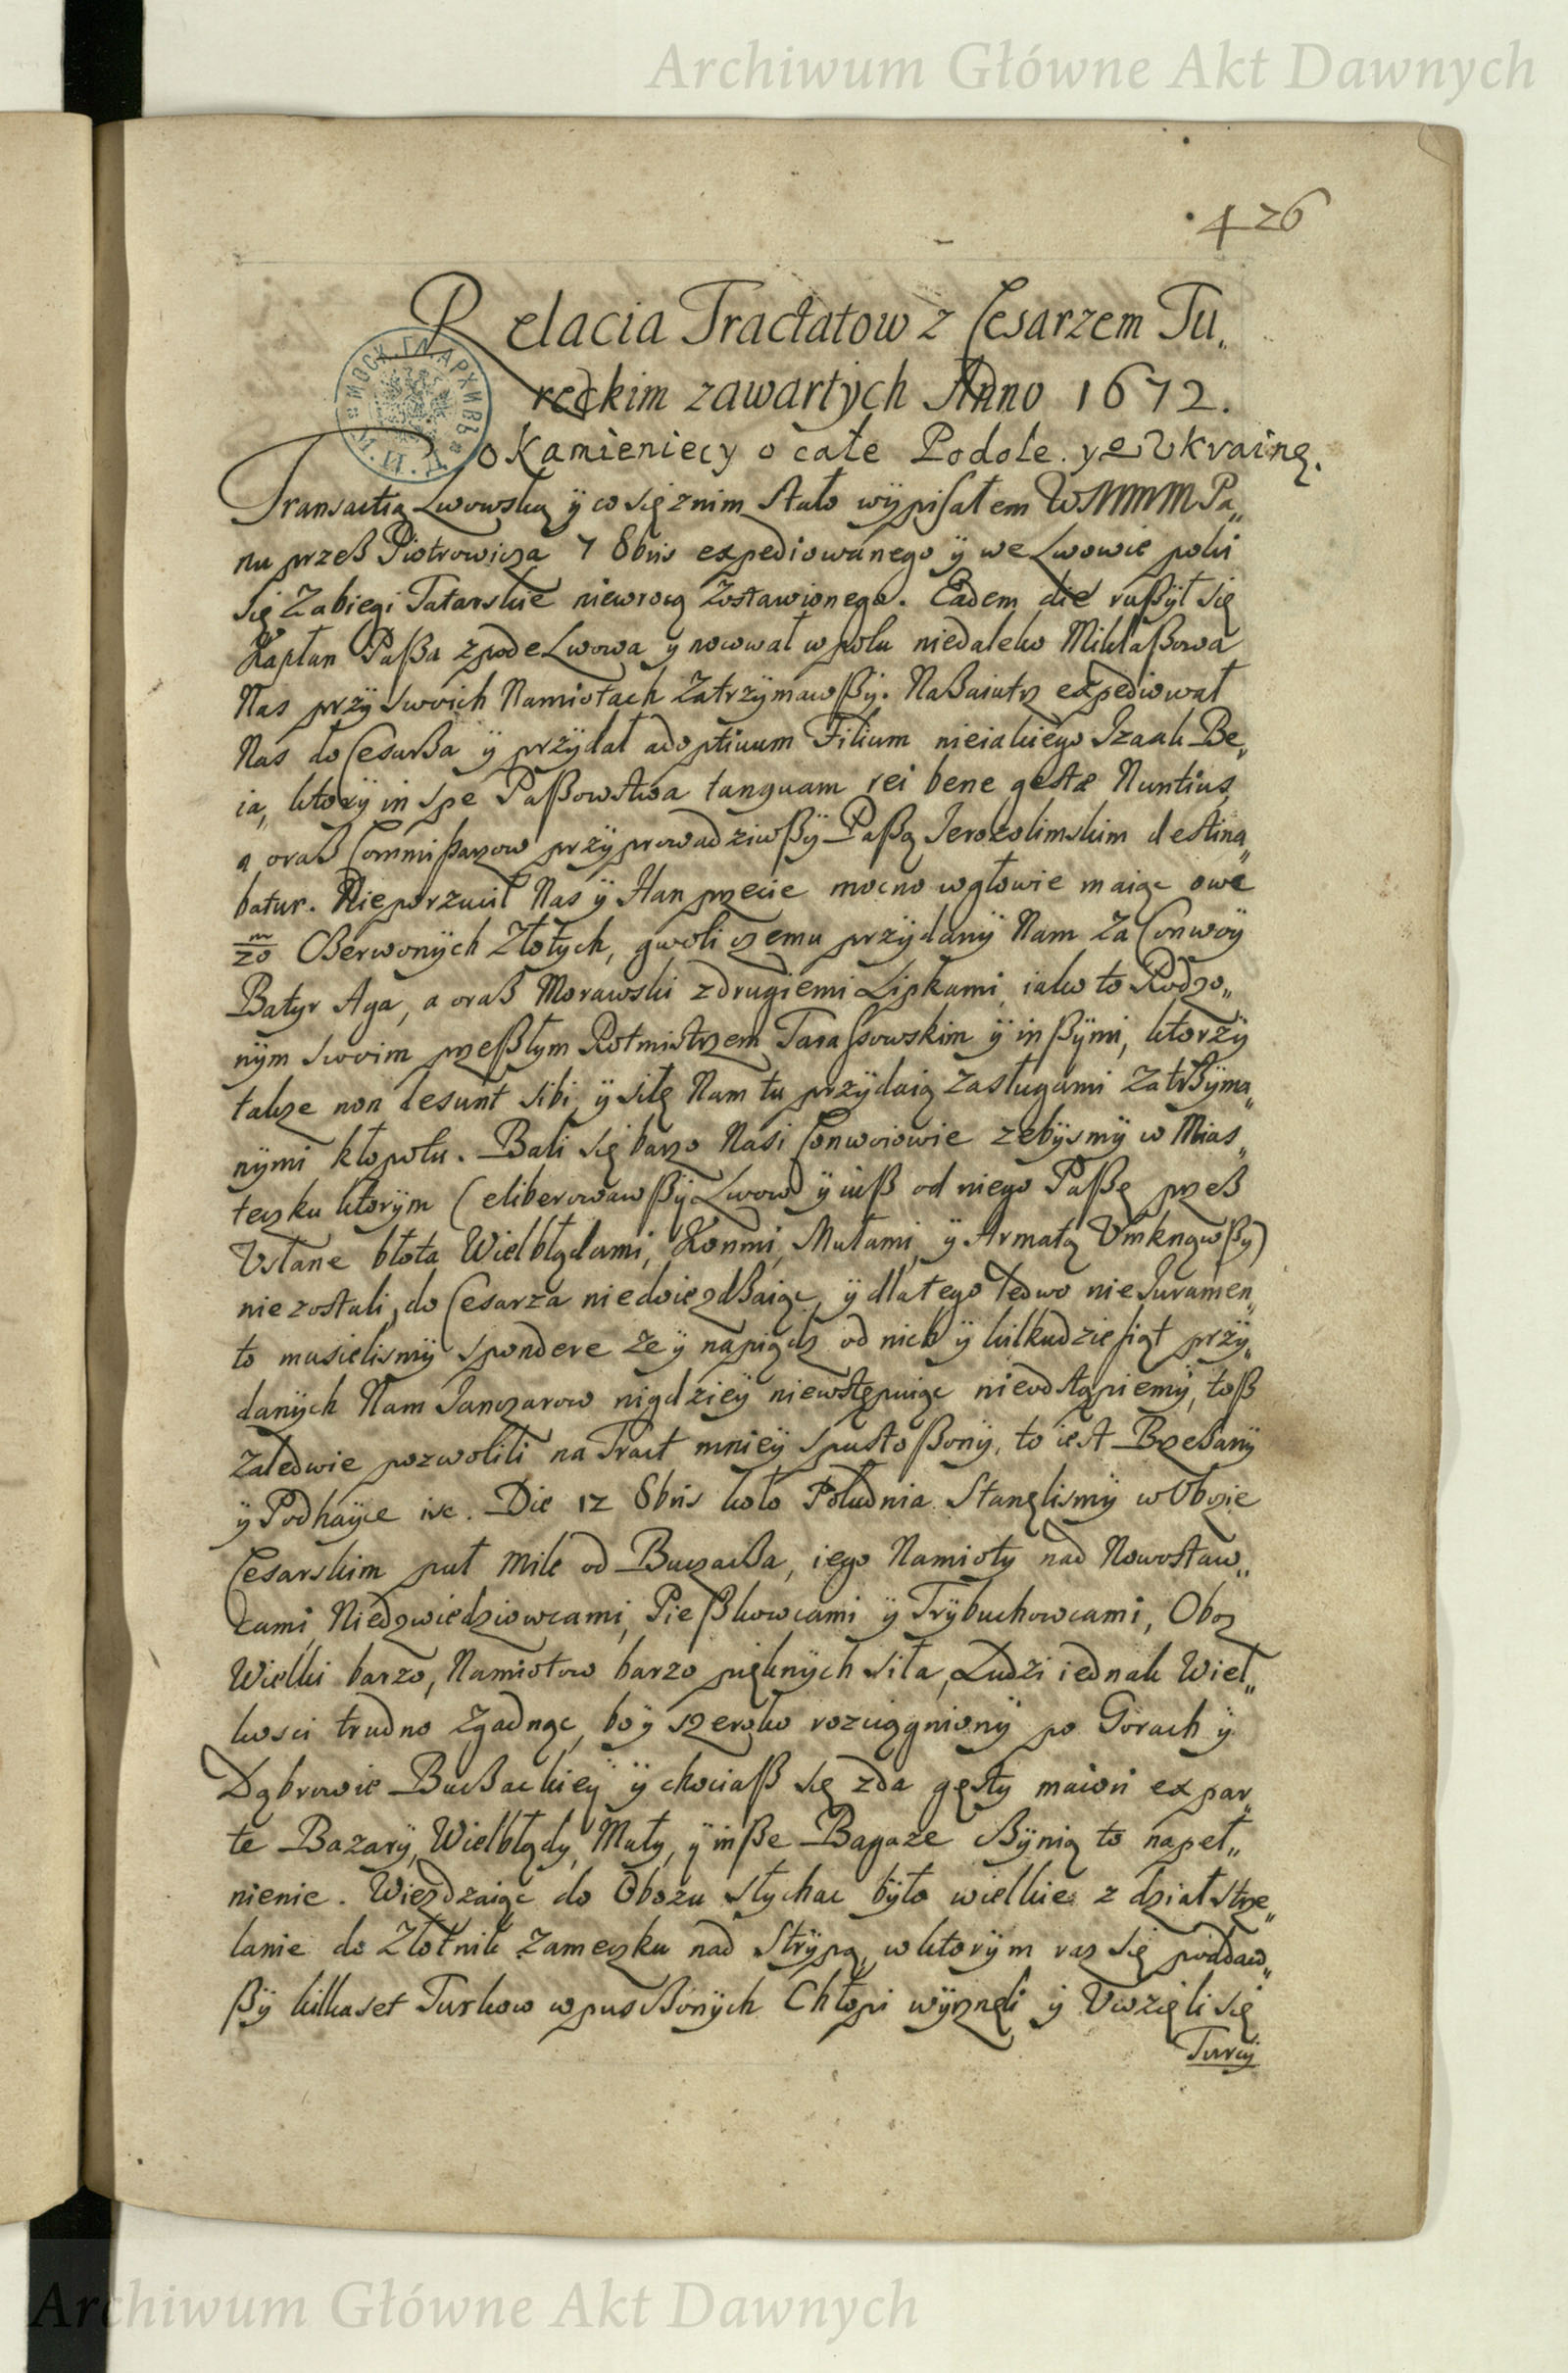 Archiwum Główne Akt Dawnych
426
Relacia Tractatow z Cesarzem Tu„
reckim zawartÿch Anno 1672.
o Kamieniecy o całe Podole. y o Ukrainę.
Transactią Lwowską ÿ co się znim stało wÿpisałem WMMMM Pa„
nu przeß Piotrowicza 7 8bris expediowanego ÿ we Lwowie poki
się Zabiegi Tatarskie niewrocą zostawionego. Eadem die rußÿł się
Kapłan Paßa zpode Lwowa y nocował w polu niedaleko Mikłaßowa
Nas przÿ swoich Namiotach Zatrzÿmawßÿ. Naßaiutrz expediował
Nas do Cesarßa ÿ przÿdał adoptiuum Filium nieiakiego Izaak Be„
ia, ktorÿ in spe Paßowstwa tanquam rei bene gestæ Nuntius,
a oraß Commißarzow przÿprowadziwßÿ Paßą Ierozolimskim destina„
batur. Nieporzucił Nas ÿ Han przecie mocno wgłowie maiąc owe
m/20 Cßerwonÿch Złotych, gwoli czemu przÿdanÿ Nam za Conwoÿ
Batyr Aga, a oraß Morawski zdrugiemi Lipkami, iako to Rodzo„
nÿm swoim przeßłym Rotmistrzem Tarassowskim ÿ inßÿmi, ktorzÿ
takze non desunt sibi, ÿ siłę Nam tu przÿdaią zasługami zatrßÿma„
nÿmi kłopotu. Bali się barzo Nasi Conwoiowie zebÿsmÿ w Mias„
teczku ktorÿm (eliberowawßÿ Lwow ÿ iuß od niego Paßę przeß
Usłane błota Wielbłądami, Konmi, Mułami, ÿ Armatą Vmknąwßy)
niezostali, do Cesarza niedoiezdßaiąc, ÿ dlatego ledwo nie Iuramen„
to musielismÿ spondere że ÿ napiądz od nich ÿ kilkudziesiąt przÿ„
danÿch Nam Ianczarow nigdzieÿ niewstępuiąc nieodstąpiemÿ, toß
zaledwie pozwolili na Tract mnieÿ spustoßonÿ, to iest Brzeßanÿ
ÿ Podhaÿce isc. Die 12 8bris koło Południa Stanęlismÿ w Obozie
Cesarskim puł Mile od Buczacßa, iego Namioty nad Nowostaw„
cami, Niedzwiedziowcami, Pießkowcami ÿ Trÿbuchowcami, Oboz
Wielki barzo, Namiotow barzo pięknÿch siła, Ludzi iednak Wiel„
kosci trudno zgadnąc, bo ÿ szeroko rozciągnionÿ po Gorach ÿ
Dąbrowie Bucßackieÿ ÿ chociaß się zda gęsty maiori ex par„
te Bazarÿ, Wielbłądy, Muły, ÿ inße Bagaze cßÿnią to napeł„
nienie. Wiezdzaiąc do Obozu słychac bÿło wielkie z dział strze„
lanie do Złotnik Zameczku nad Strÿpą, w ktorÿm raz się poddaw„
ßÿ kilkaset Turkow wpuscßonÿch Chłopi wÿrznęli ÿ Vwzięli się
Turcÿ
Archiwum Główne Akt Dawnych